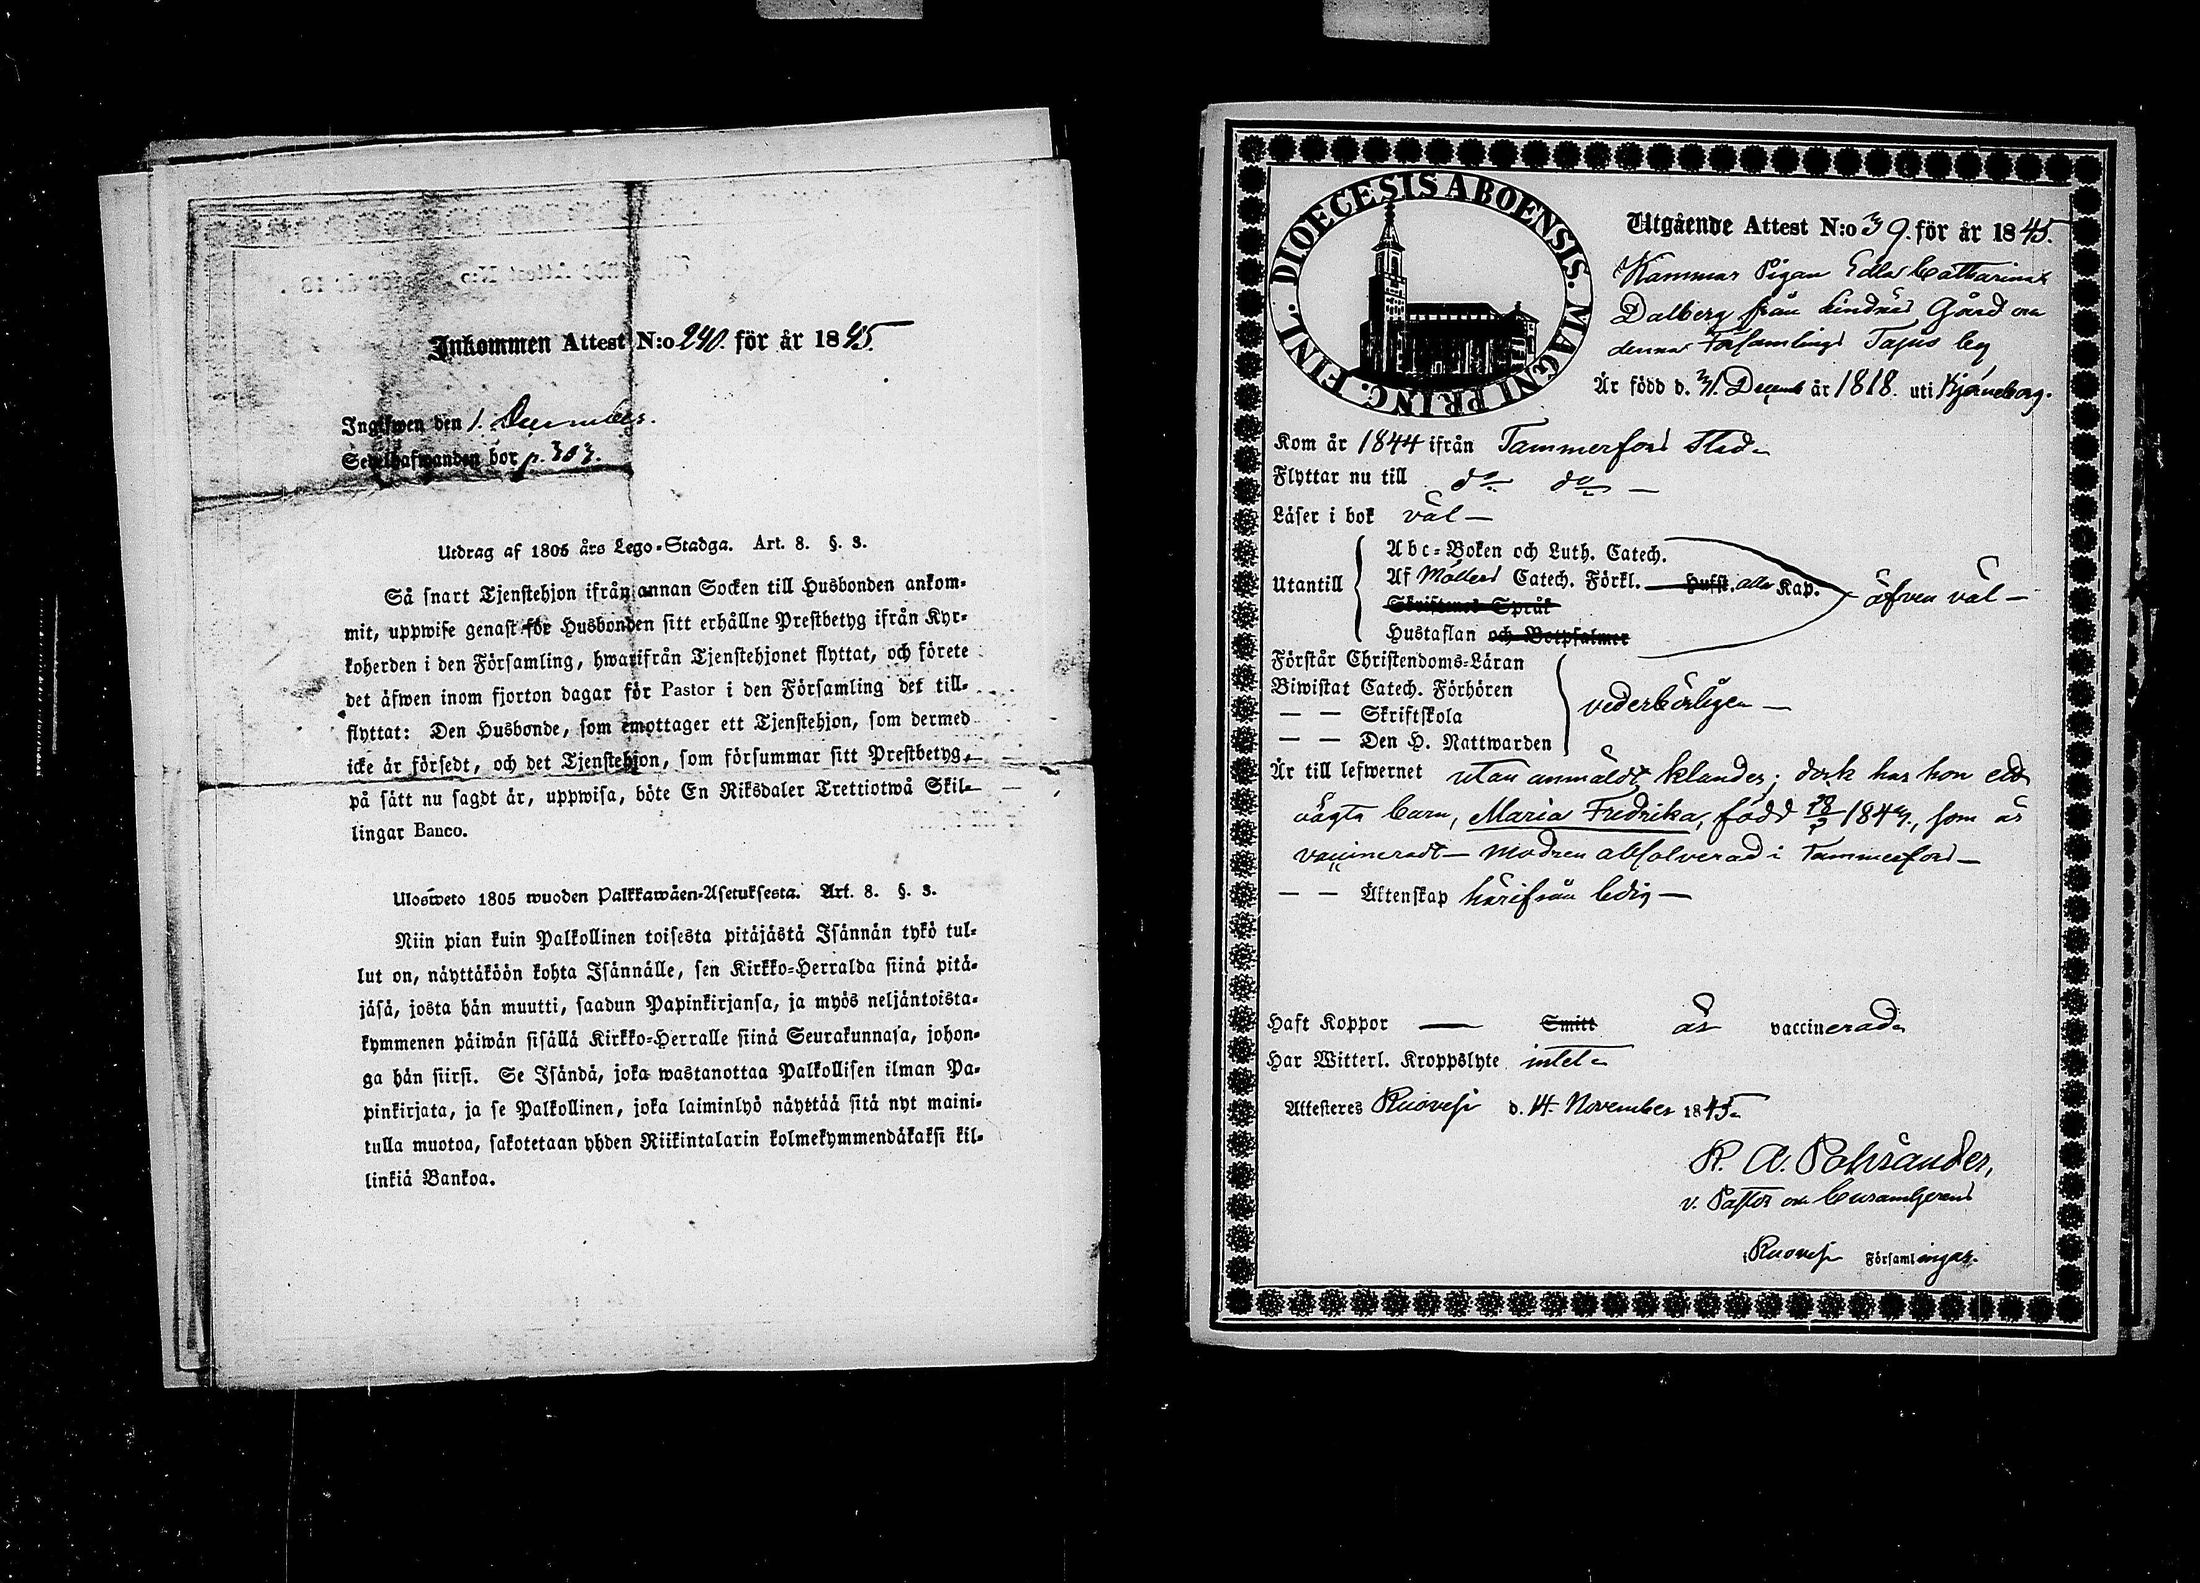 Inkommen Attest N:o 240. för år 1845.
Ingifwen den 1. December.
Sedelhafwanden bor p. 303.
Utdrag af 1805 års Lego-Stadga. Art. 8. §. 3.
Så snart Tjenstehjon ifrån annan Socken till Husbonden ankom-
mit, uppwise genast för Husbonden sitt erhållne Prestbetyg ifrån Kyr-
koherden i den Församling, hwarifrån Tjenstehjonet flyttat, och förete
det äfwen inom fjorton dagar för Pastor i den Församling det till-
flyttat: Den Husbonde, som emottager ett Tjenstehjon, som dermed
icke är försedt, och det Tjenstehjon, som försummar sitt Prestbetyg,
på sätt nu sagdt är, uppwisa, böte En Riksdaler Trettiotwå Skil-
lingar Banco.
Ulosweto 1805 wuoden Palkkawäen-Asetuksesta. Art. 8. §. 3.
Niin pian kuin Palkollinen toisesta pitäjästä Isännän tykö tul-
lut on, näyttäköön kohta Isännälle, sen Kirkko-Herralda siinä pitä-
jäsä, josta hän muutti, saadun Papinkirjansa, ja myös neljäntoista-
kymmenen päiwän sisällä Kirkko-Herralle siinä Seurakunnasa, johon-
ga hän siirsi. Se Isändä, joka wastanottaa Palkollisen ilman Pa-
pinkirjata, ja se Palkollinen, joka laiminlyö näyttää sitä nyt maini-
tulla muotoa, sakotetaan yhden Riikintalarin kolmekymmendäkaksi kil-
linkiä Bankoa.
DIOECESIS ABOENSIS. MAGNI PRINC. FINL.
Utgående Attest N:o 39. för år 1845.
Kammar Pigan Edla Catharina
Dalberg från Lindnäs Gård om
denna Församlings Tapus by
Är född d. 31. Decemb år 1818. uti Björneborg.
Kom år 1844 ifrån Tammerfors Stad
Flyttar nu till do do —
Läser i bok väl —
Abc-Boken och Luth. Catech.
Utantill Af Möllers Catech. Förkl. — Hufst. alla Kap. äfven väl —
Skriftenes Språk
Hustaflan och Botpsalmer
Förstår Christendoms-Läran
Biwistat Catech. Förhören vederbörligen —
— — Skriftskola
— — Den H. Nattwarden
Är till lefwernet utan anmäldt klander; dock har hon ett
oägta barn, Maria Fredrika, född 1843., som är
vaccineradt — modren absolverad i Tammerfors —
— — Äktenskap härifrån ledig —
Haft Koppor — Smitt är vaccinerad
Har Witterl. Kroppslyte intet
Attesteras Ruovesi d. 14. November 1845
K. A. Pahrsander,
v. Pastor
i Ruovesi Församlingar.